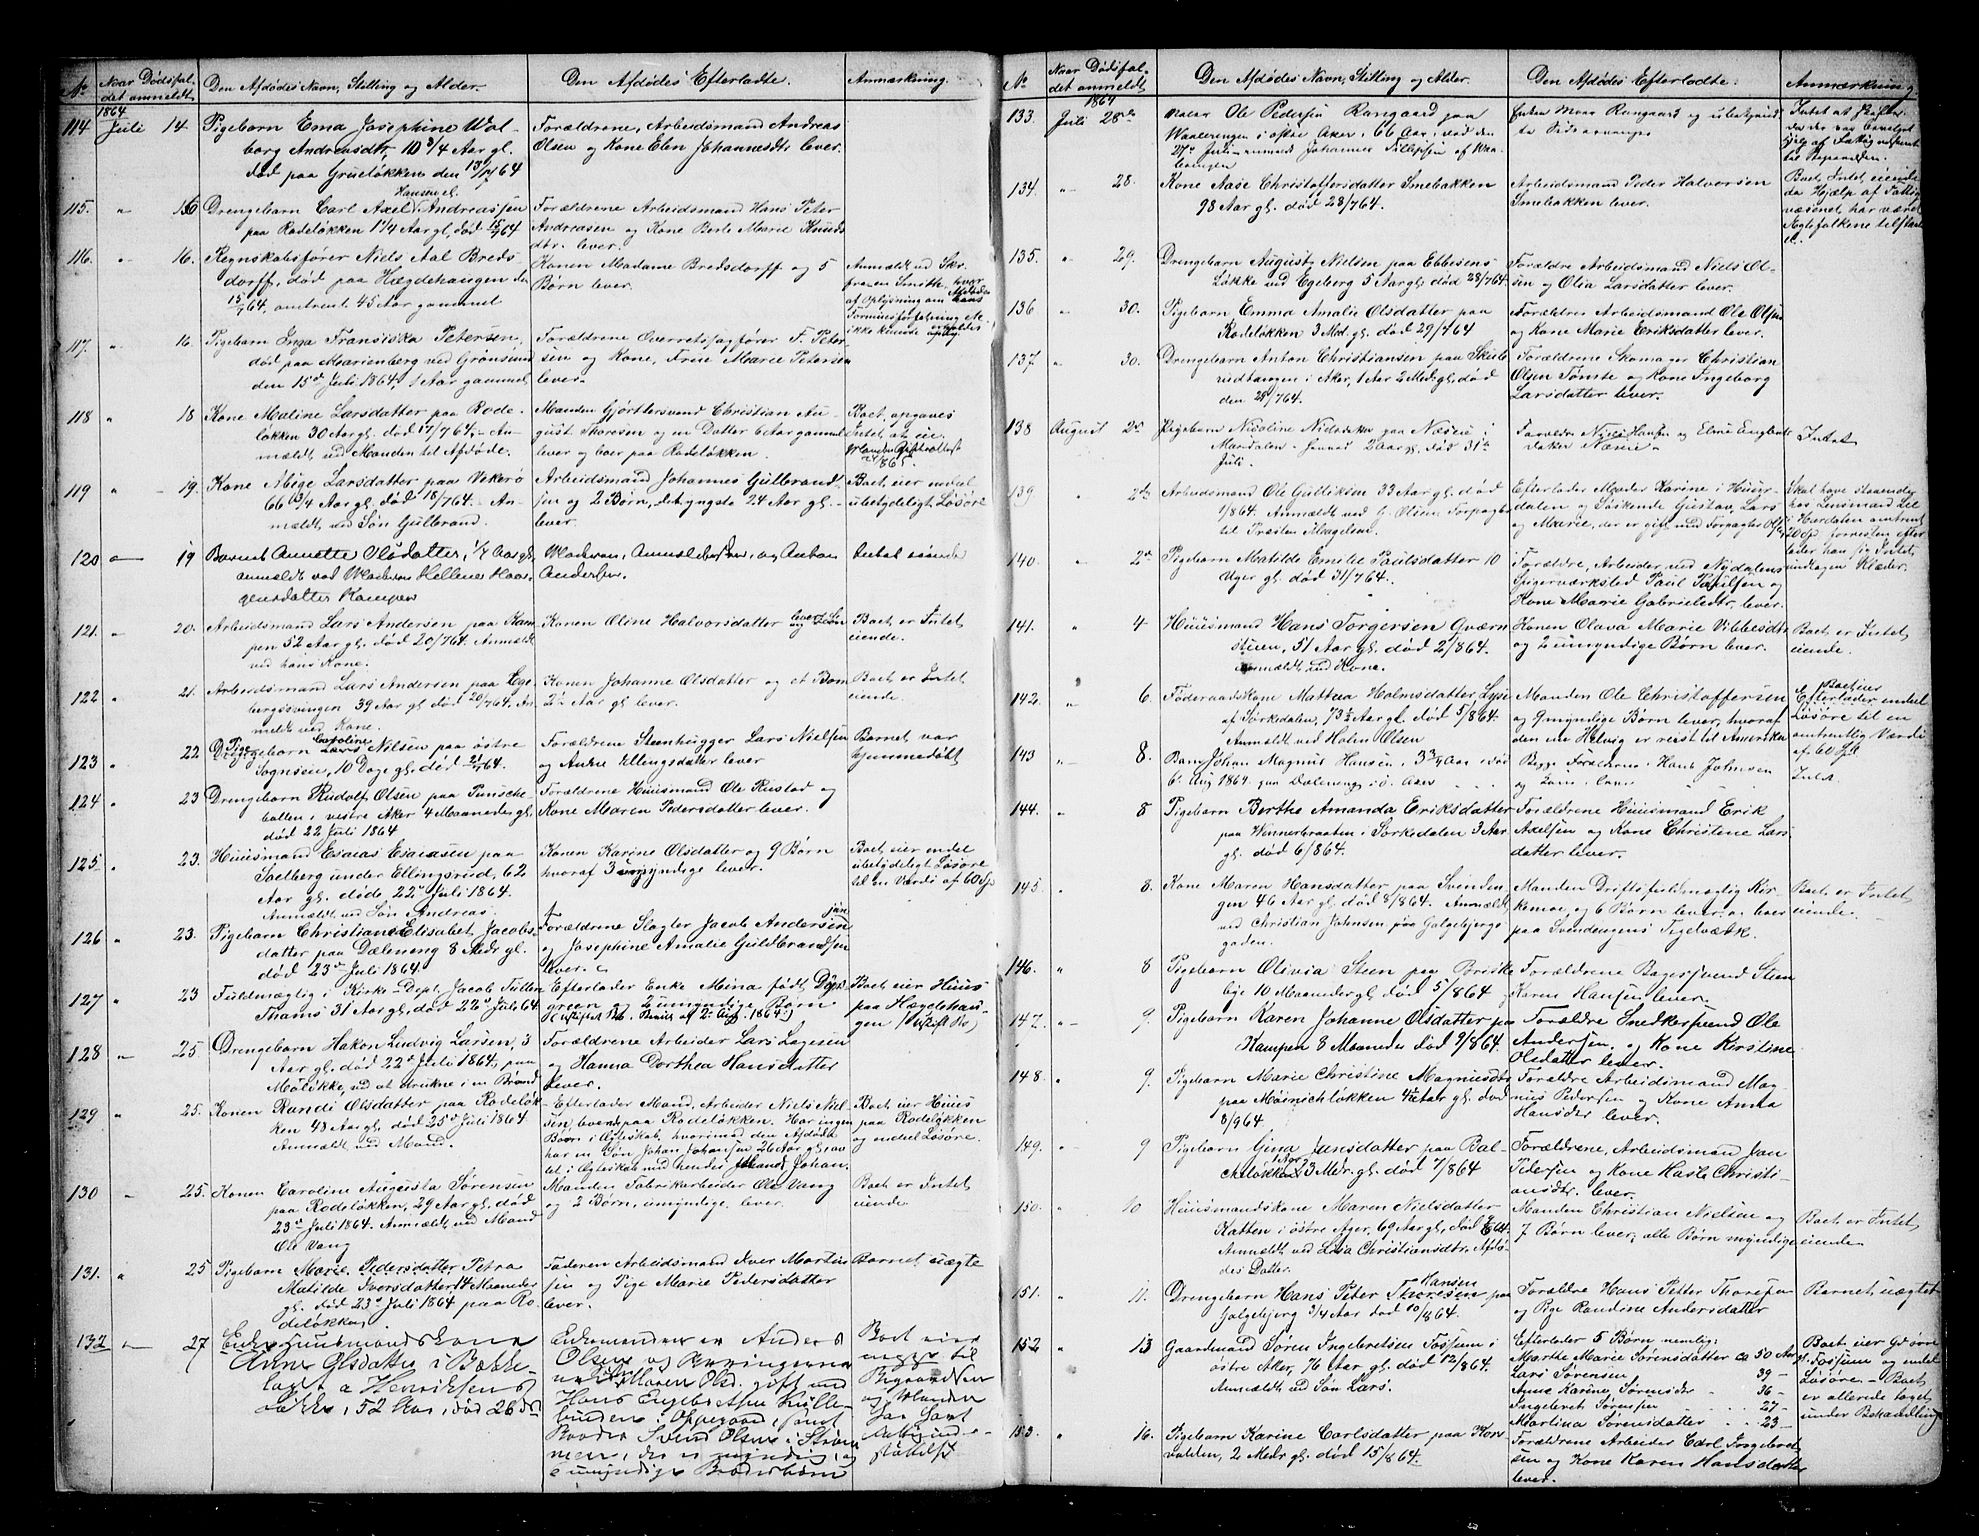 No
Naar Dødsfal-
det anmeldt
Den Afdødes Navn, Stilling og Alder.
Den Afdødes Efterladte.
Anmærkning.
1864
114 Juli 14. Pigebarn Ema Josephine Wal-
borg Andreasdtr, 10 3/4 Aar gl.
død paa Grueløkken den 13/7 64
Forældrene, Arbeidsmand Andreas
Olsen og Kone Elen Johannesdtr lever.
115. " 16 Drengebarn Carl Axel Andreassen
paa Rodeløkken 1 1/4 Aar gl, død 15/7 64
Forældrene Arbeidsmand Hans Peter
Andreasen og Kone Berte Marie Knuds
dtr. lever.
116. " 16. Regnskabsfører Niels Aal Breds-
dorff, død paa Hægdehaugen den
15/7 64, omtrent 45 Aar gammel
Konen Madame Bredsdorff og 5
Børn lever.
Anmeldt ved Skr.
117. " 16. Pigebarn Inga Fransiska Petersen,
død paa Marienberg ved Grønsund
den 15de Juli 1864, 1 Aar gammel,
Forældrene Overretssagfører F. Peter-
sen og Kone, Frue Marie Petersen
lever.
118 " 18 Kone Maline Larsdatter paa Rode-
løkken 30 Aar gl. død 17/7 64, - An-
mældt ved Manden til Afdøde.
Manden Gjørtlersvend Christian Au-
gust Thoresen og en Datter 6 Aar gammel
lever og boer paa Rodeløkken.
Boet opgaves
Intet at eie.
119 " 19. Kone Abige Larsdatter paa Vekerø
66 3/4 Aar gl. død 18/7 64. - An-
mældt ved Søn Gulbrand.
Arbeidsmand Johannes Gulbrand-
sen og 2 Børn, det yngste 24 Aar gl. -
lever.
Boet eier endel
ubetydeligt Løsøre
120 19 Barnet Annette Olsdatter, 1/4 Aar gl.
anmeldt ved Moderen Hellene Haa-
gensdatter Kampen
Intet eiende
121. " 20. Arbeidsmand Lars Andersen paa Kam
pen 52 Aar gl. død 20/7 64. Anmeldt
ved hans Kone.
Konen Oline Halvorsdatter lever og Søn
Boet er Intet
eiende.
122 " 21. Arbeidsmand Lars Andersen paa Ege
bergsvingen 39 Aar gl. død 20/7 64. An
meldt ved Kone
Konen Johanne Olsdatter og et Barn
2 1/2 Aar gl lever.
Boet er Intet
eiende.
123 " 22 Pigebarn Caroline Nilsen paa østre
Sognsen, 10 Dage gl. død 21/7 64.
Forældrene Steenhugger Lars Nielsen
og Andrie Ellingsdatter lever
Barnet var
hjemmedøbt
124 " 23 Drengebarn Rudolf Olsen paa Punsche
bollen i vestre Aker 4 Maaneder gl,
død 22 Juli 1864
Forældrene Huusmand Ole Rustad og
Kone Maren Pedersdatter lever.
125 " 23. Huusmand Esaias Esaiasen paa
Solberg under Ellingsrud, 62
Aar gl. døde 22de Juli 1864.
Anmældt ved Søn Andreas.
Konen Karine Olsdatter og 9 Børn
hvoraf 3 umyndige lever.
Boet eier endel
ubetydeligt Løsøre
til en Værdi af 60 Sp
126 " 23. Pigebarn Christiane Elisabet Jacobs-
datter paa Dæleneng 8 Mdr gl.
død 23de Juli 1864.
Forældrene Slagter Jacob Andersen
og Josephine Amalie Guldbrandsen
lever.
127 " 23 Fuldmægtig i Kirke-Dept. Jacob Tullen
Thams 31 Aar gl. død 22de Juli 64.
Efterlader Enke Mina født Dyps
green og 2 umyndige Børn
Boet eier Huus
paa Hægdehau-
gen
128 " 25 Drengebarn Hakon Ludvig Larsen, 3
Aar gl. død 22de Juli 1864, paa
ved at drukne i en Brønd
Forældrene Arbeider Lars Lagesen
og Hanna Dorthea Hansdatter
lever.
129 " 25. Konen Randi Olsdatter paa Rodeløk-
ken 48 Aar gl, død 25de Juli 1864.
Anmældt ved Mand.
Efterlader Mand, Arbeider Niels Niel-
sen, lever paa Rodeløkken. Har ingen
Børn i Egteskab, hvorimod den Afdøde
har en Søn Johan Johansen 26 Aar gl. av
let i Egteskab med hendes Mand Johan.
Boet eier Huus
paa Rodeløkken
og endel Løsøre.
130 " 25. Konen Caroline Augusta Sørensen
paa Rodeløkken, 29 Aar gl, død
23de Juli 1864. Anmeldt ved Mand
Ole Vang
Manden Fabrikarbeider Ole Vang
og 2 Børn, umyndige lever.
Boet er Intet
eiende.
131. " 25 Pigebarn Marie Pedersdatter Petra
Matilde Iversdatter, 14 Maaneder
gl. død 23de Juli 1864 paa Ro-
deløkken.
Faderen Arbeidsmand Iver Martin
sen og Pige Marie Pedersdatter
lever.
Barnet uægte
132 27 Huusmandskone
Anne Olsdatter i Bække-
laget a Henriksens
Løkke, 52 Aar, død 26de
Enkemanden er Anders
Olsen og Arvingerne
Maren Olsd. gift med
Hans Engebretsen
i Oppegaard, samt
Broder Svend Olsen i Strøm-
men, der er myndig, og
umyndige Broderbørn
Boet eier
neppe til
Begravelsen
og Manden
har havt
understøttelse
No
Naar Dødsfal-
det anmeldt
Den Afdødes Navn, Stilling og Alder.
Den Afdødes Efterladte.
Anmærkning.
1864
133. Juli 28de Maler Ole Pedersen Rangaard paa
Waalerengen i østre Aker, 66 Aar, død den
27de Juli anmeldt Johannes Fillipsen af Waa-
lerengen
Enken Maren Rangaard og
134. " 28. Kone Aase Christoffersdatter Smebakken
98 Aar gl. død 28/7 64.
Arbeidsmand Peder Halvorsen
Smebakken lever.
Boet Intet eiende
da Hjælp af Fattig
væsenet har været
Egtefolkene tilstaaet
135. " 29. Drengebarn August Nielsen paa Ebbesens
Løkke ved Egeberg 5 Aar gl. død 28/7 64.
Forældre Arbeidsmand Niels Ol-
sen og Olia Larsdatter lever.
136 " 30. Pigebarn Emma Amalie Olsdatter paa
Rodeløkken 3 Mdr. gl. død 29/7 64
Forældrene Arbeidsmand Ole Olsen
og Kone Marie Eriksdatter lever.
137 " 30. Drengebarn Anton Christiansen paa
i Aker, 1 Aar 2 Mdr. gl, død
den 28/7 64.
Forældrene Skomager Christian
Olsen Tømte og Kone Ingeborg
Larsdatter lever.
138 August 2de Pigebarn Nicoline
Maridalen 2 Aar gl. død 31te
Juli.
Intet
139 " 2de Arbeidsmand Ole Gulliksen 33 Aar gl. død
1/8 64. Anmeldt ved
Efterlader Moder Karine i Huur-
dalen og Søskende Gustav, Lars
og Marie, der er gift med Forpagter
140. " 2de Pigebarn Matilde Emilie Paulsdatter 10
Uger gl. død 31/7 64.
Forældre, Arbeider ved Nydalens
Spigerværksted Paul Paulsen og
Kone Marie Gabrielsdtr. lever.
141. " 4 Huusmand Hans Torgersen Qværn
stuen, 51 Aar gl. død 2/8 64.
Anmældt ved Kone.
Konen Olava Marie Vibbesdtr
og 2 umyndige Børn lever.
Boet er Intet
eiende.
142. " 6. Føderaadskone Mathea Holmsdatter
af Sørkedalen, 73 1/2 Aar gl. død 5/8 64.
Anmældt ved Holen Olsen
Manden Ole Christoffersen
og 9 myndige Børn lever, hvoraf
den ene Helvig er reist til Amerika
Efterlader endel
Løsøre til en
omtrentlig Værdi
af 60 Sp
143 " 8. Barn Johan Magnus Hansen, 3 3/4 Aar død
6te Aug 1864 paa Dælenengen i ø. Aker
Begge Forældrene Hans Johnsen
Intet.
144. " 8 Pigebarn Berthe Amanda Eriksdatter
paa Winnerbraaten i Sørkedalen 3 Aar
gl. død 6/8 64.
Forældrene Huusmand Erik
Axelsen og Kone Christene Lars
datter lever.
145. " 8. Kone Maren Hansdatter paa Svenden
gen 46 Aar gl. død 8/8 64. Anmældt
ved Christian Johnsen paa Galgebjergs
gaden.
Manden Driftsfuldmægtig Kir-
kemoe, og 6 Børn lever, og boer
paa Svendengens Tegelværk.
Boet er Intet
eiende.
146. " 8 Pigebarn Olivia Steen paa Briske
bye 10 Maaneder gl. død 5/8 64
Forældrene Bagersvend Steen
Karen Hansen lever.
147. " 9. Pigebarn Karen Johanne Olsdatter paa
Kampen 8 Maaneder død 9/8 64.
Forældre Snedkersvend Ole
Andersen, og Kone Kirstine
Olsdatter lever.
148. " 9. Pigebarn Marie Christine Magnusdtr
paa Meinichløkken Aar gl. død
8/9 64
Forældre Arbeidsmand Mag-
nus Pedersen og Kone Anna
Hansdtr lever.
149. " 9 Pigebarn Gina Jansdatter paa Bal-
keløkken 3 Mdr. gl. død 7/8 64
Forældrene, Arbeidsmand Jan
Petersen og Kone Christi-
ansdtr. lever.
150. " 10 Huusmandskone Maren Nielsdatter
Katten i østre Ager, 69 Aar gl, død
Anmældt ved Lisa Christiansdtr. Afdø-
des Datter.
Manden Christian Nielsen og
7 Børn lever, alle Børn myndige
Boet er Intet
eiende.
151. " 11. Drengebarn Hans Peter Thoresen Hansen paa
Galgebjerg 3/4 Aar død 10/8 64.
Forældre Hans Petter Thoresen
og Pige Randine Andersdatter
Barnet uægte
152 " 13 Gaardmand Søren Ingebretsen Fossum i
østre Aker, 76 Aar gl. død 12/8 64.
Anmældt ved Søn Lars.
Efterlader 5 Børn nemlig:
Marthe Marie Sørensdatter ca 50 Aar
Lars Sørensen 39 -
Anne Karine Sørensdtr - 36 -
Ingebret Sørensen - 27 -
Martina Sørensdatter " 23 -
Boet eier Gd østre
Fossum og endel
Løsøre. - Boet
er allerede taget
under Behandling
153. " 16. Pigebarn Karine Carlsdatter paa
2 Mdr gl. død 15/8 64.
Forældrene Arbeider Carl Ingebret-
sen og Kone Karen Hansdatter
lever.